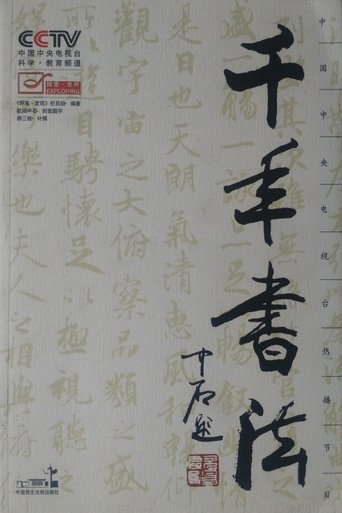 CCTV
中国中央电视台
科学·教育频道
探索·发现
EXPLORING
《探索·发现》栏目组·编著
欧阳中石·封面题字
千年書法
中石題
中国中央电视台热播节目
是日也天朗氣清惠風和暢
觀宇宙之大俯察品類之盛
目騁懷足以極視聽
樂也夫人之相與
中国民主法制出版社